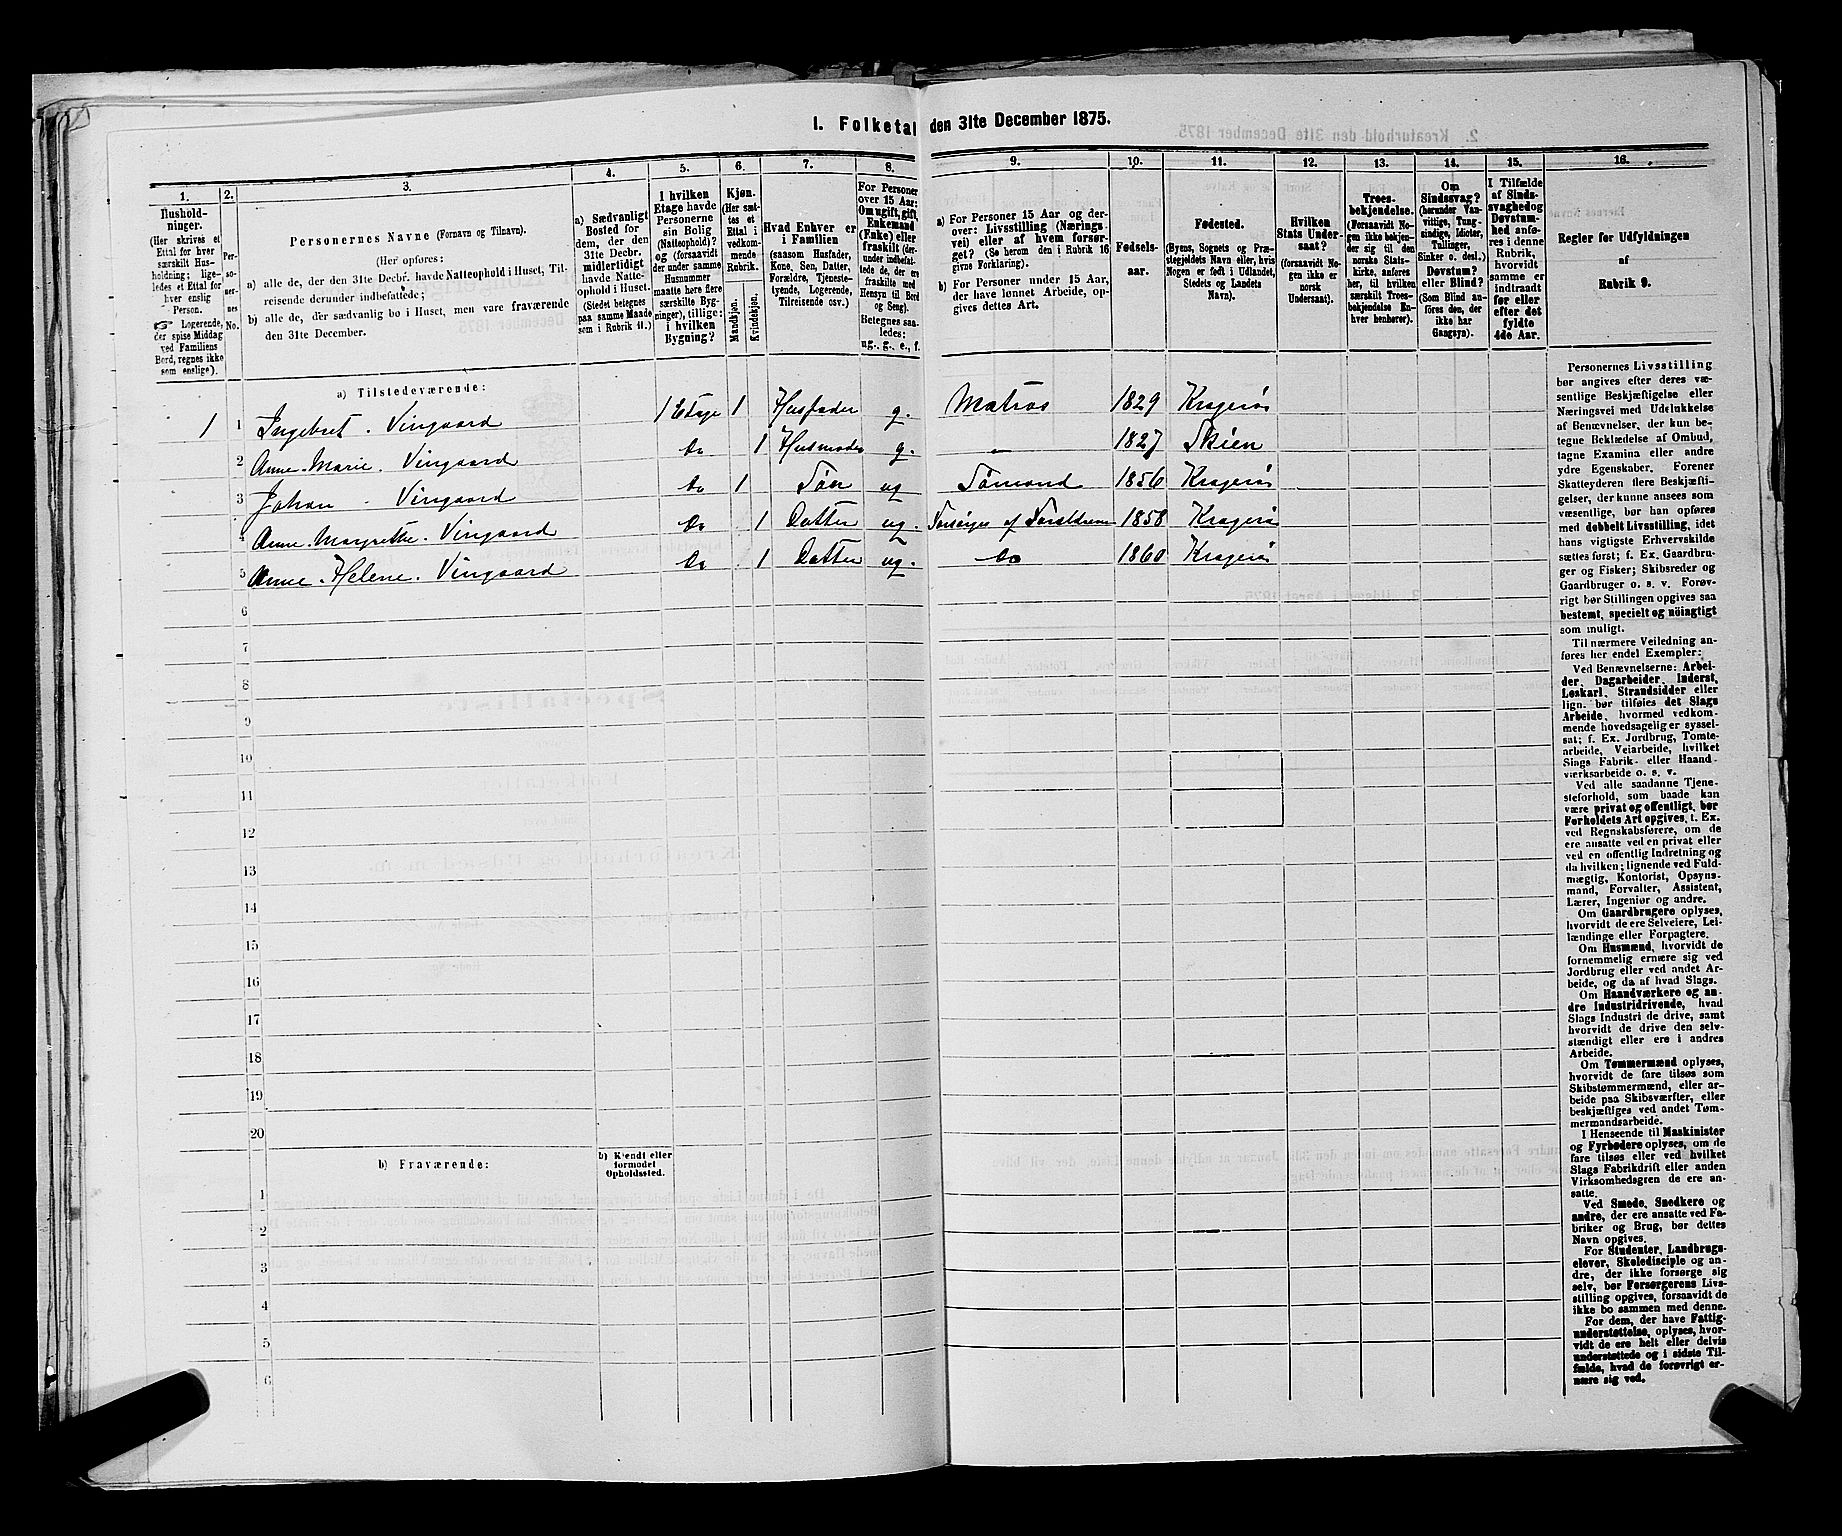 1. Folketal den 31te December 1875.
1. 2. 3. 4. 5. 6. 7. 8. 9. 10. 11. 12. 13. 14. 15. 16.
Husholdninger.
(Her skrives et
Ettal for hver
særskilt Husholdning; ligeledes et Ettal for
hver enslig
Person.
Logerende,
der spise Middag
ved Familiens
Bord, regnes ikke
som enslige).
Personernes No.
Personernes Navne (Fornavn og Tilnavn).
(Her opføres:
a) alle de, der den 31te Decbr. havde Natteophold i Huset, Tilreisende derunder indbefattede;
b) alle de, der sædvanlig bo i Huset, men vare fraværende
den 31te December.
a) Sædvanligt
Bosted for
dem, der den
31te Decbr.
midlertidigt
havde Natteophold i Huset.
(Stedet betegnes
paa samme Maade
som i Rubrik 11.)
I hvilken
Etage havde
Personerne
sin Bolig
(Natteophold)?
og (forsaavidt
der under samme
Husnummer
maatte høre flere
særskilte Bygninger), tillige:
i hvilken
Bygning?
Kjøn.
(Her sættes et
Ettal i
vedkommende
Rubrik.
Mandkjøn.
Kvindekjøn.
Hvad Enhver er
i Familien
(saasom Husfader,
Kone, Søn, Datter,
Forældre, Tjenestetyende, Logerende,
Tilreisende osv.)
For Personer
over 15 Aar:
Om ugift, gift,
Enkemand
(Enke) eller
fraskilt
Betegnes saaledes:
ug., g., e., f.
a) For Personer 15 Aar og derover: Livsstilling (Næringsvei) eller af hvem forsørget? (Se herom den i Rubrik 16
givne Forklaring).
b) For Personer under 15 Aar,
der have lønnet Arbeide, opgives dettes Art.
Fødselsaar.
Fødested.
(Byens, Sognets og Præstegjeldets Navn eller, hvis
Nogen er født i Udlandet,
Stedets og Landets
Navn).
Hvilken
Stats Undersaat?
(forsaavidt Nogen ikke er
norsk
Undersaat).
Troesbekjendelse.
(Forsaavidt Nogen ikke bekjender sig til den
norske Statskirke, anføres
her, til hvilken
særskilt Troesbekjendelse Enhver henhører).
Om
Sindssvag?
(herunder Vanvittige, Tungsindige, Idioter,
Tullinger,
Sinker o. desl.)
Døvstum?
eller Blind?
(Som Blind anføres den, der
ikke har
Gangsyn).
I Tilfælde
af Sindssvaghed og
Døvstumhed anføres i denne
Rubrik,
hvorvidt
samme er
indtraadt
før eller
efter det
fyldte
4de Aar.
Regler for Udfyldningen
af
Rubrik 9.
a) Tilstedeværende:
1 1 Ingebret. Vingaard 1 Etage 1 Husfader g. Matros 1829 Kragerø
2 Anne. Marie. Vingaard do 1 Husmoder g. — 1827 Skien
3 Johan. Vingaard do 1 Søn ug Sømand 1856 Kragerø
4 Anne. Margrethe. Vingaard do 1 Datter ug. Forsørges af Forældrene 1858 Kragerø
5 Anne. Helene. Vingaard do 1 Datter ug. do 1860 Kragerø
6
7
8
9
10
11
12
13
14
15
16
17
18
19
20
b) Fraværende:
b) Kjendt eller
formodet
Opholdssted.
1
2
3
4
5
6
Personernes Livsstilling
bør angives efter deres væsentlige Beskjæftigelse eller
Næringsvei med Udelukkelse
af Benævnelser, der kun betegne Beklædelse af Ombud,
tagne Examina eller andre
ydre Egenskaber. Forener
Skatteyderen flere Beskjæftigelser, der kunne ansees som
væsentlige, bør han opføres
med dobbelt Livsstilling, idet
hans vigtigste Erhvervskilde
sættes først; f. Ex. Gaardbruger og Fisker; Skibsreder og
Gaardbruger o. s. v. Forøvrigt bør Stillingen opgives saa
bestemt, specielt og nöiagtigt
som muligt.
Til nærmere Veiledning anføres her endel Exempler:
Ved Benævnelserne: Arbeider, Dagarbeider, Inderst,
Løskarl, Strandsidder eller
lign. bør tilføies det Slags
Arbeide, hvormed vedkommende hovedsagelig er sysselsat; f. Ex. Jordbrug, Tomtearbeide, Veiarbeide, hvilket
Slags Fabrik- eller Haandværksarbeide o. s. v.
Ved alle saadanne Tjenesteforhold, som baade kan
være privat og offentligt, bør
Forholdets Art opgives, t. Ex.
ved Regnskabsførere, om de
ere ansatte ved en privat eller
ved en offentlig Indretning og
da hvilken; lignende ved Fuldmægtig, Kontorist, Opsynsmand, Forvalter, Assistent,
Lærer, Ingeniør og andre.
Om Gaardbrugere oplyses,
hvorvidt de ere Selveiere, Leilændinge eller Forpagtere.
Om Husmænd, hvorvidt de
fornemmelig ernære sig ved
Jordbrug eller ved andet Arbeide, og da af hvad Slags.
Om Haandværkere og andre Industridrivende, hvad
Slags Industri de drive, samt
hvorvidt de drive den selvstændigt eller ere i andres
Arbeide.
Om Tømmermænd oplyses,
hvorvidt de fare tilsøs som
Skibstømmermænd, eller arbeide paa Skibsværfter, eller
beskjæftiges ved andet Tømmermandsarbeide.
I Henseende til Maskinister
og Fyrbødere oplyses, om de
fare tilsøs eller ved hvilket
Slags Fabrikdrift eller anden
Virksomhedsgren de ere ansatte.
Ved Smede, Snedkere og
andre, der ere ansatte ved Fabriker og Brug, bør dettes
Navn opgives.
For Studenter, Landbrugselever, Skoledisciple og andre, der ikke forsørge sig
selv, bør Forsørgerens Livsstilling opgives, forsaavidt de
ikke bo sammen med denne.
For dem, der have Fattigunderstøttelse, oplyses, hvorvidt de ere helt eller delvis
understøttede og i sidste Tilfælde, hvad de forøvrigt ernære sig ved.